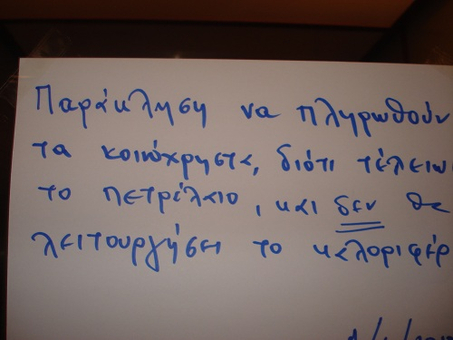 Παράκληση να πληρωθούν
τα κοινόχρηστα, διότι τέλειω
το πετρέλαιο, και δεν θα
λειτουργήσει το καλοριφέρ